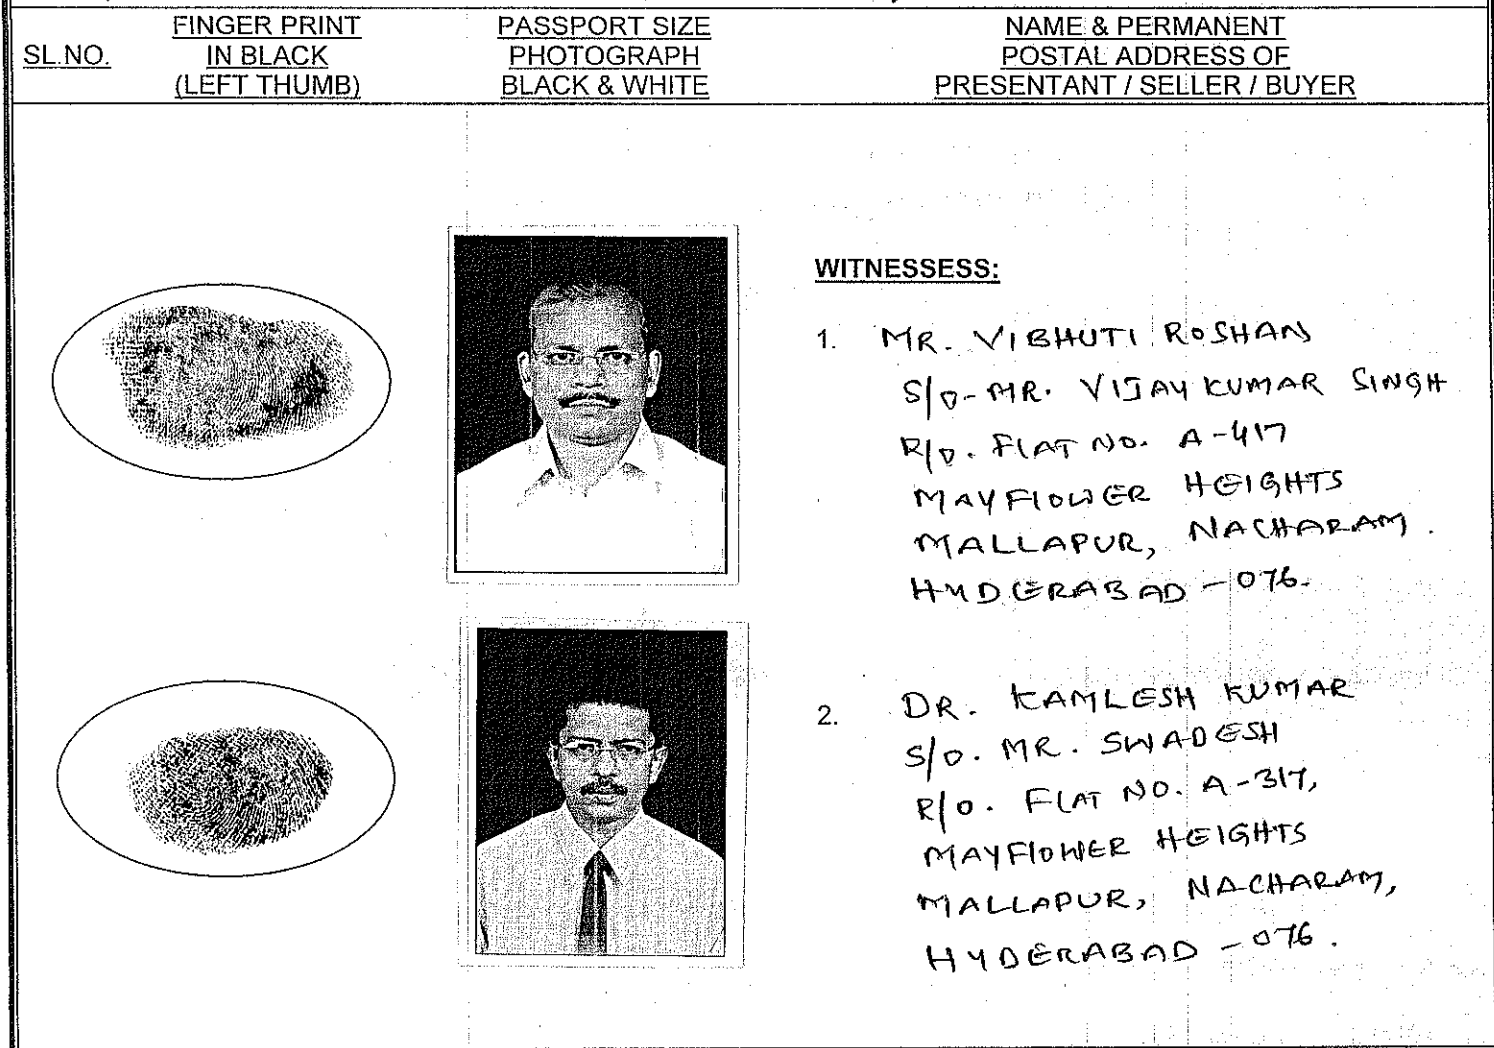 SL.NO.
FINGER PRINT
IN BLACK
(LEFT THUMB)
PASSPORT SIZE
PHOTOGRAPH
BLACK & WHITE
NAME & PERMANENT
POSTAL ADDRESS OF
PRESENTANT / SELLER / BUYER
WITNESSESS:
1. MR. VIBHUTI ROSHAN
S/O-MR. VIJAY KUMAR SINGH
R/O. FLAT NO. A-417
MAYFLOWER HEIGHTS
MALLAPUR, NACHARAM.
HYDERABAD -076.
2. DR. KAMLESH KUMAR
S/O. MR. SWADESH
R/O. FLAT NO. A-317,
MAYFLOWER HEIGHTS
MALLAPUR, NACHARAM,
HYDERABAD -076.